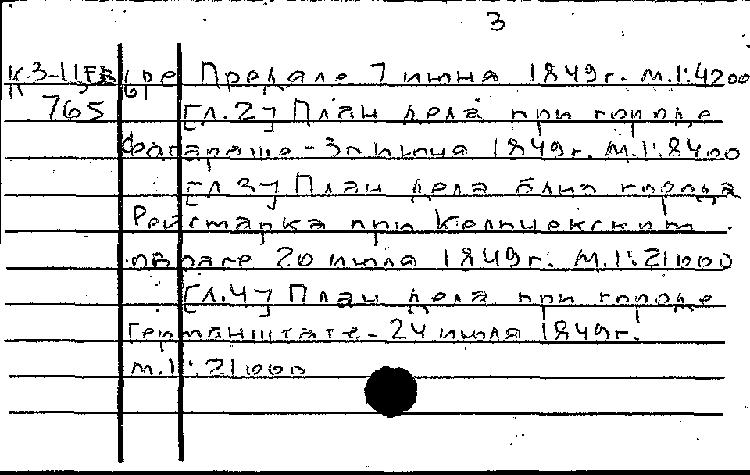 3
К3-11 ре Предале 7 июня 1849г. М.1:4200
765 [Л.2] План дела при городе
Фогараше - 3го июля 1849г. М.1:8400
[Л.3] План дела близ города
Рейсмарка при
овраге 20 июля 1849г. М.1:21000
[Л.4] План дела при городе
Германштате - 24 июля 1849г.
М.1:21000